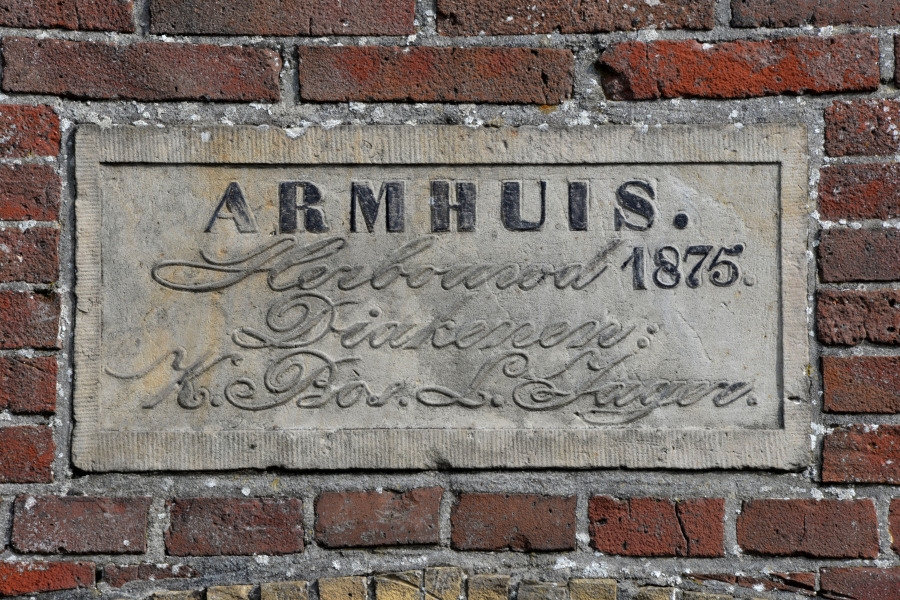 ARMHUIS.
Herbouwd 1875.
Diakenen:
K. Bos. L. Jager.